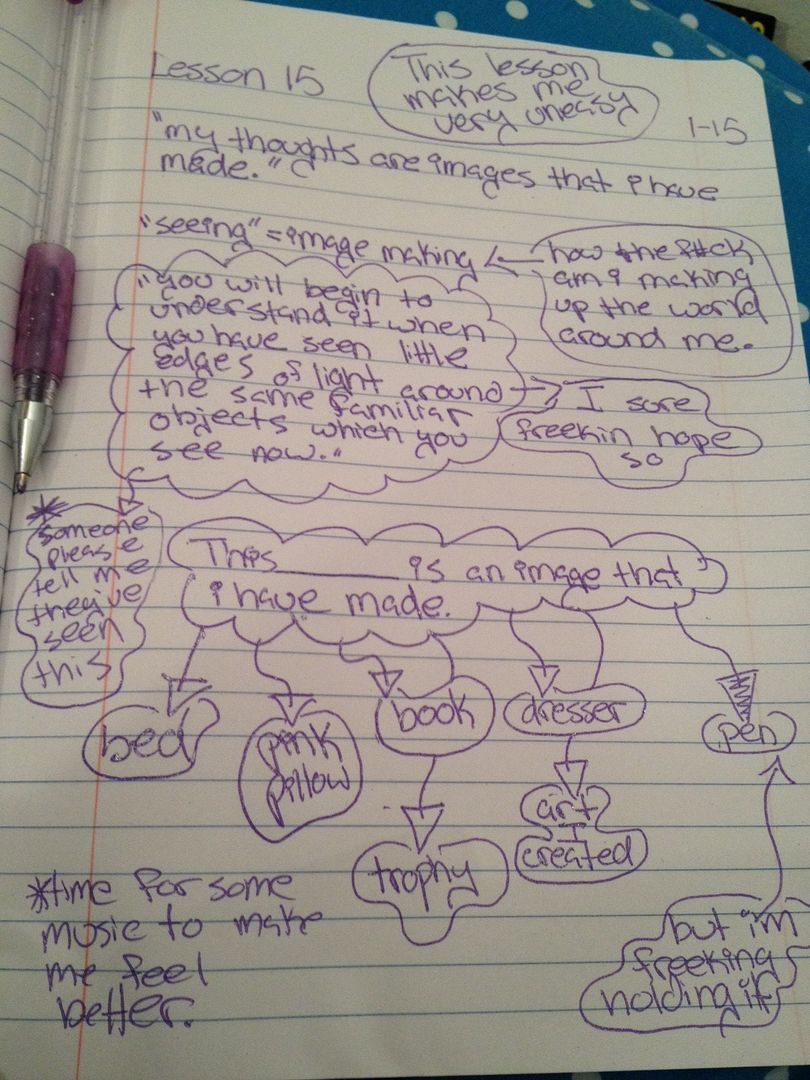 Lesson 15
This lesson
makes me
very uneasy
1-15
"my thoughts are images that i have
made."
"seeing" = image making
how the f#ck
am i making
up the world
around me.
"you will begin to
understand it when
you have seen little
edges of light around
the same familiar
objects which you
see now."
I sure
freekin hope
so
*
someone
please
tell me
they've
seen
this
This ______ is an image that
i have made.
bed
pink
pillow
book
dresser
pen
trophy
art
I
created
but i'm
freeking
holding it
*time for some
music to make
me feel
better.